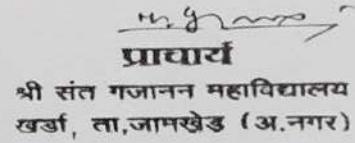 प्राचार्य
श्री संत गजानन महाविद्यालय
खर्डा, ता,जामखेड (अ.नगर)